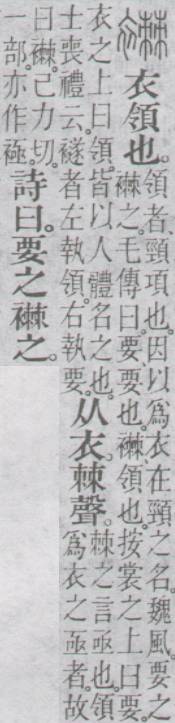 襋 衣領也。領者、頸項也。因以爲衣在頸之名。魏風。要之
襋之。毛傳曰。要、要也。襋、領也。按裳之上曰要。
衣之上曰領。皆以人體名之也。
士喪禮云。襚者左執領。右執要。
从衣。棘聲。棘之言亟也。領
爲衣之亟者。故
曰襋。己力切。
一部。亦作極。
詩曰。要之襋之。